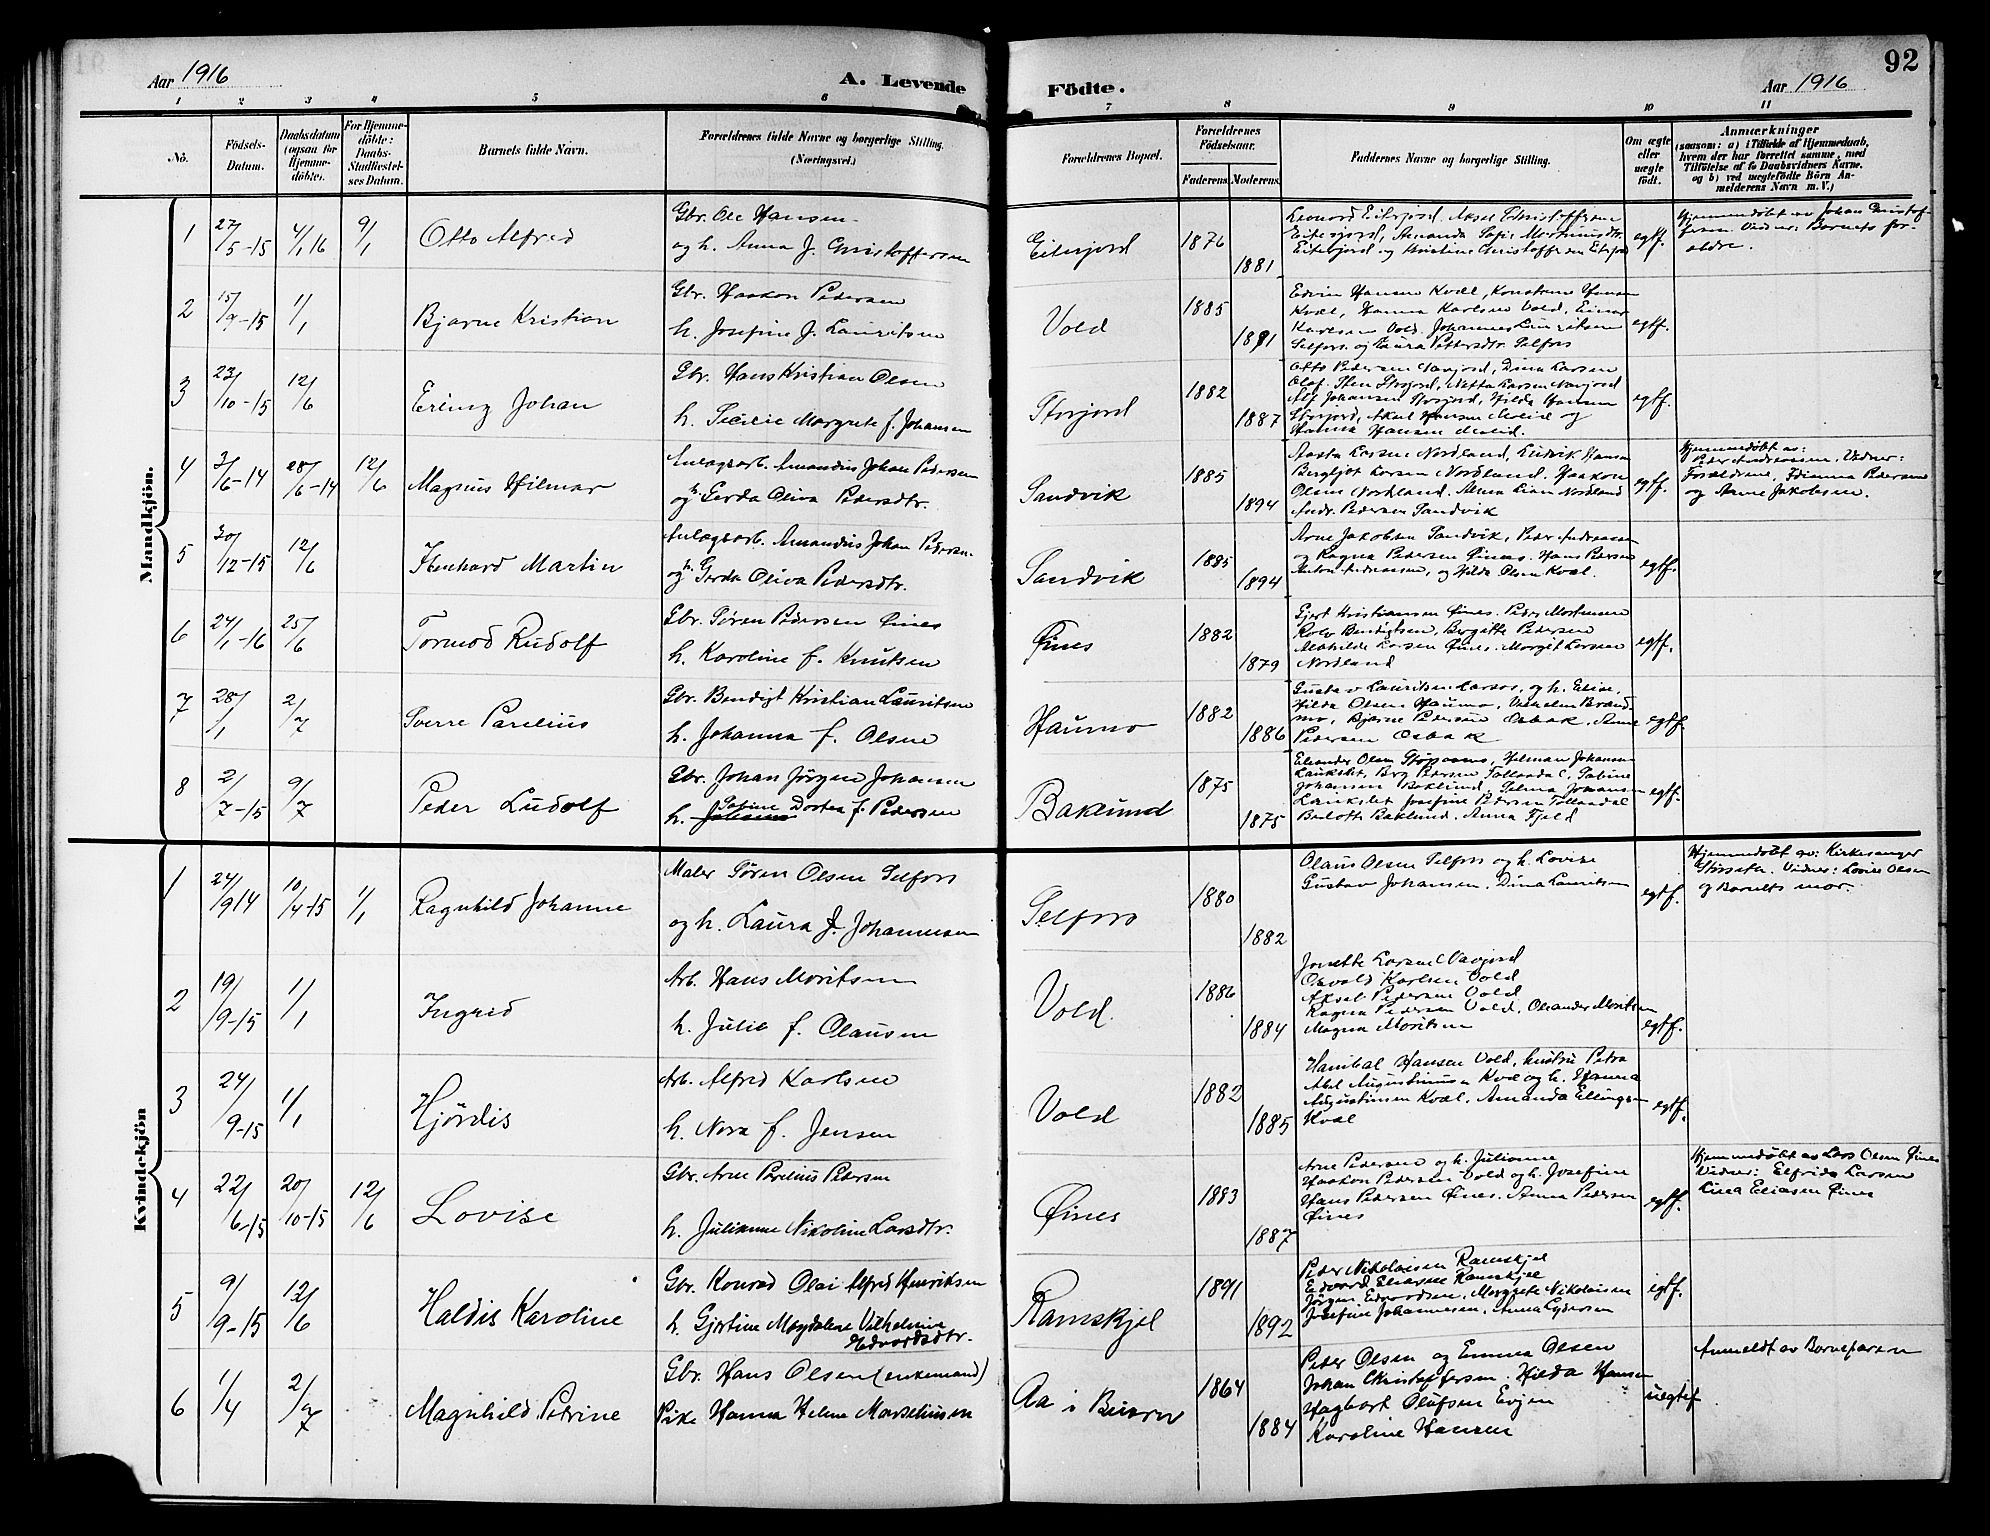 92
Aar 1916
A. Levende
Födte.
Aar 1916
1 2 3 4 5 6 7 8 9 10 11
No.
Födsels-
Datum.
Daabsdatum
(ogsaa for
Hjemme-
döbte).
For Hjemme-
döbte:
Daabs-
Stadfæstel-
ses Datum.
Barnets fulde Navn.
Forældrenes fulde Navne og borgerlige Stilling.
(Næringsvei.)
Forældrenes Bopæl.
Forældrenes
Födselsaar.
Faderens. Moderens.
Faddernes Navne og borgerlige Stilling.
Om ægte
eller
uægte
födt.
Anmærkninger
(saasom: a) i Tilfælde af Hjemmedaab,
hvem der har forrettet samme, med
Tilföielse af to Daabsvidners Navne.
og b) ved uægtefödte Börn An-
melderens Navn m. V.)
Mandkjön.
1 27/5-15 4/1 16 9/1 Otto Alfred
Gbr. Ole Hansen
og h. Anna J. Christoffersen
Eiterjord 1876 1881
Leonord Eiterjord, Aksel Christoffersen
Eiterjord, Amanda Sofie Mortinusdtr.
Eiterjord og Kristine Christoffersen Eiterjord
egtf.
Hjemmedøbt av Johan Christof-
fersen. Vidner: Barnets for-
ældre.
2 15/9-15 1/1 Bjarne Kristian
Gbr. Haakon Pedersen
h. Josefine J. Lauritsen
Vold 1885 1891
Edvin Hansen Kvæl, Konstanse Hansen
Kvæl, Hanna Karlsen Vold, Einar
Karlsen Vold, Johannes Lauritsen
Selfors og Laura Pettersdtr. Selfors
egtf.
3 23/10-15 12/6 Erling Johan
Gbr. Hans Kristian Olsen
h. Secilie Margrete f. Johansen
Storjord 1882 1887
Otto Pedersen Navjord, Dina Larsen
Olaf Sten Storjord, Netta Larsen Navjord
Alf Johansen Storjord, Hilda Hansen
Storjord, Aksel Hansen og
Hanna Hansen
egtf.
4 3/6-14 28/6-14 12/6 Magnus Hilmar
Anlægsarb. Amandus Johan Pedersen
og h. Gerda Oliva Pedersdtr.
Sandvik 1885 1894
Aasta Larsen Nordland, Ludvik Hansen
Bergljot Larsen Nordland, Haakon
Olsen Nordland. Alma Lian Nordland
Andr. Pedersen Sandvik
egtf.
Hjemmedøbt av:
Peder Andreassen, Vidner:
Forældrene, Pedersen
og Arne Jakobsen.
5 30/12-15 12/6 Henhard Martin
Anlægsarb. Amandus Johan Pedersen
og h. Gerda Oliva Pedersdtr.
Sandvik 1885 1894
Arne Jakobsen Sandvik, Peder Andreassen
og Ragna Pedersen Øines. Hans Pedersen
Anton Andreassen, og Hilda Olsen Kvæl.
egtf.
6 24/1-16 25/6 Tormod Rudolf
Gbr. Søren Pedersen Øines
h. Karoline f. Knutsen
Øines 1882 1879
Gjert Kristiansen Øines. Peder Mortensen
Rolv Bendigtsen, Bergitte Pedersen
Mathilde Larsen Øines. Margit Larsen
Nordland
egtf.
7 28/1 2/7 Sverre Parelius
Gbr. Bendigt Kristian Lauritsen
h. Johanna f. Olsen
Haumo 1882 1886
Gustav Lauritsen og h. Elise,
Hilda Olsen Haumo, Vilhelm Brand-
mo, Bjarne Pedersen Osbak, Anne
Pedersen Osbak
egtf.
8 2/7-15 9/7 Peder Ludolf
Gbr. Johan Jørgen Johansen
h. Sabine Dortea f. Pedersen
Baklund 1875 1875
Eleander Olsen, Hilman Johansen
Laukslet, Berg Pedersen Tollaadal, Sabine
Johansen Baklund, Selma Johansen
Laukslet Josefine Pedersen Tollaadal
Berlotte Baklund. Anna Fjeld
egtf.
Kvindekjön
1 24/9 14 10/4-15 1/1 Ragnhild Johanne
Maler Sören Olsen Selfors
og h. Laura J. Johannesen
Selfors 1880 1882
Olaus Olsen Selfors og h. Lovise
Gustav Johansen, Dina Lauritsen
egtf.
Hjemmedøbt av: Kirkesanger
Vidner: Lovise Olsen
og Barnets mor.
2 19/9-15 1/1 Ingrid
Arb. Hans Moritsen
h. Julie f. Olausen
Vold. 1886 1884
Jonette Larsen Navjord
Osvald Karlsen Vold
Aksel Pedersen Vold
Ragna Pedersen Vold, Oleander Moritsen
Magna Moritsen
egtf.
3 24/9-15 1/1 Hjördis
Arb. Alfred Karlsen
h. Nora f. Jensen
Vold 1882 1885
Hanibal Hansen Vold, hustru Petra
Abel Augustinussen Kvæl og h. Hanna
Augustinsen Kvæl, Amanda Ellingsen
Kvæl
egtf.
4 22/6-15 20/10-15 12/6 Lovise
Gbr. Arne Parelius Pedersen
h. Julianne Nikoline Larsdtr.
Øines 1883 1887
Arne Pedersen og h. Julianne
Haakon Pedersen Vold og h. Josefine
Hans Pedersen Øines. Anna Pedersen
Øines
egtf.
Hjemmedøbt av Lars Olsen Øines
Vidner: Elfrida Larsen
Lina Eliasen Øines
5 9/9-15 12/6 Haldis Karoline
Gbr. Konrad Olai Alfred Henriksen
h. Gjertine Magdalene Vilhelmine
Edvardsdtr.
Ramskjel 1891 1892
Peder Nikolaisen Ramskjel
Edvard Eliassen Ramskjel
Jørgen Edvardsen, Margrete Nikolaisen
Josefine Johannesen, Anna
egtf.
6 1/4 2/7 Magnhild Petrine
Gbr. Hans Olsen (enkemand)
Pike Hanna Helene Marseliussen
Aa i Beiarn 1864 1884
Peder Olsen og Emma Olsen
Johan Christoffersen. Hilda Hansen
Hagbart Olufsen Evjen
Karoline Hansen
uegtef
Anmeldt av Barnefaren